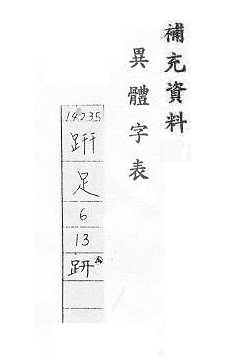 補充資料
異體字表
14235
足
6
13
趼